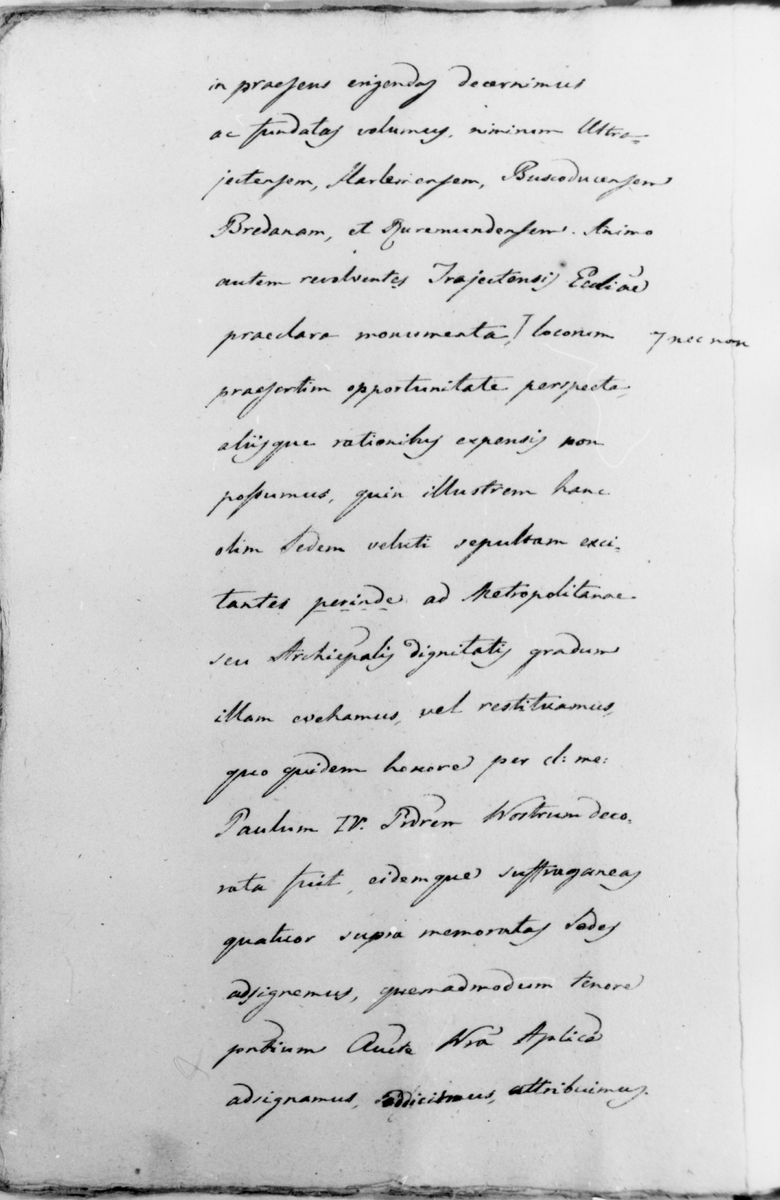 in praesens erigendas decernimus
ac fundatas volumus, nimirum Ultra-
jectensem, Harlemensem, Buscoducensem
Bredanam, et Ruremundensem. Animo
autem revolventes Trajectensis Eccliae
praeclara monumenta, ⁊ locorum ⁊ nec non
praesertim opportunitate perspecta,
aliisque rationibus expensis non
possumus, quin illustrem hanc
olim Sedem veluti sepultam exci-
tantes perinde ad Metropolitanae
seu Archiepalis dignitatis gradum
illam evehamus, vel restituamus,
quo quidem honore per cl: me:
Paulum IV. Prdrem Nostrum deco-
rata fuit, eidemque suffraganeas
quatuor supra memoratas Sedes
adsignemus, quemadmodum tenore
prntium Aucte Nra Aplica
adsignamus, addicimus, attribuimus.